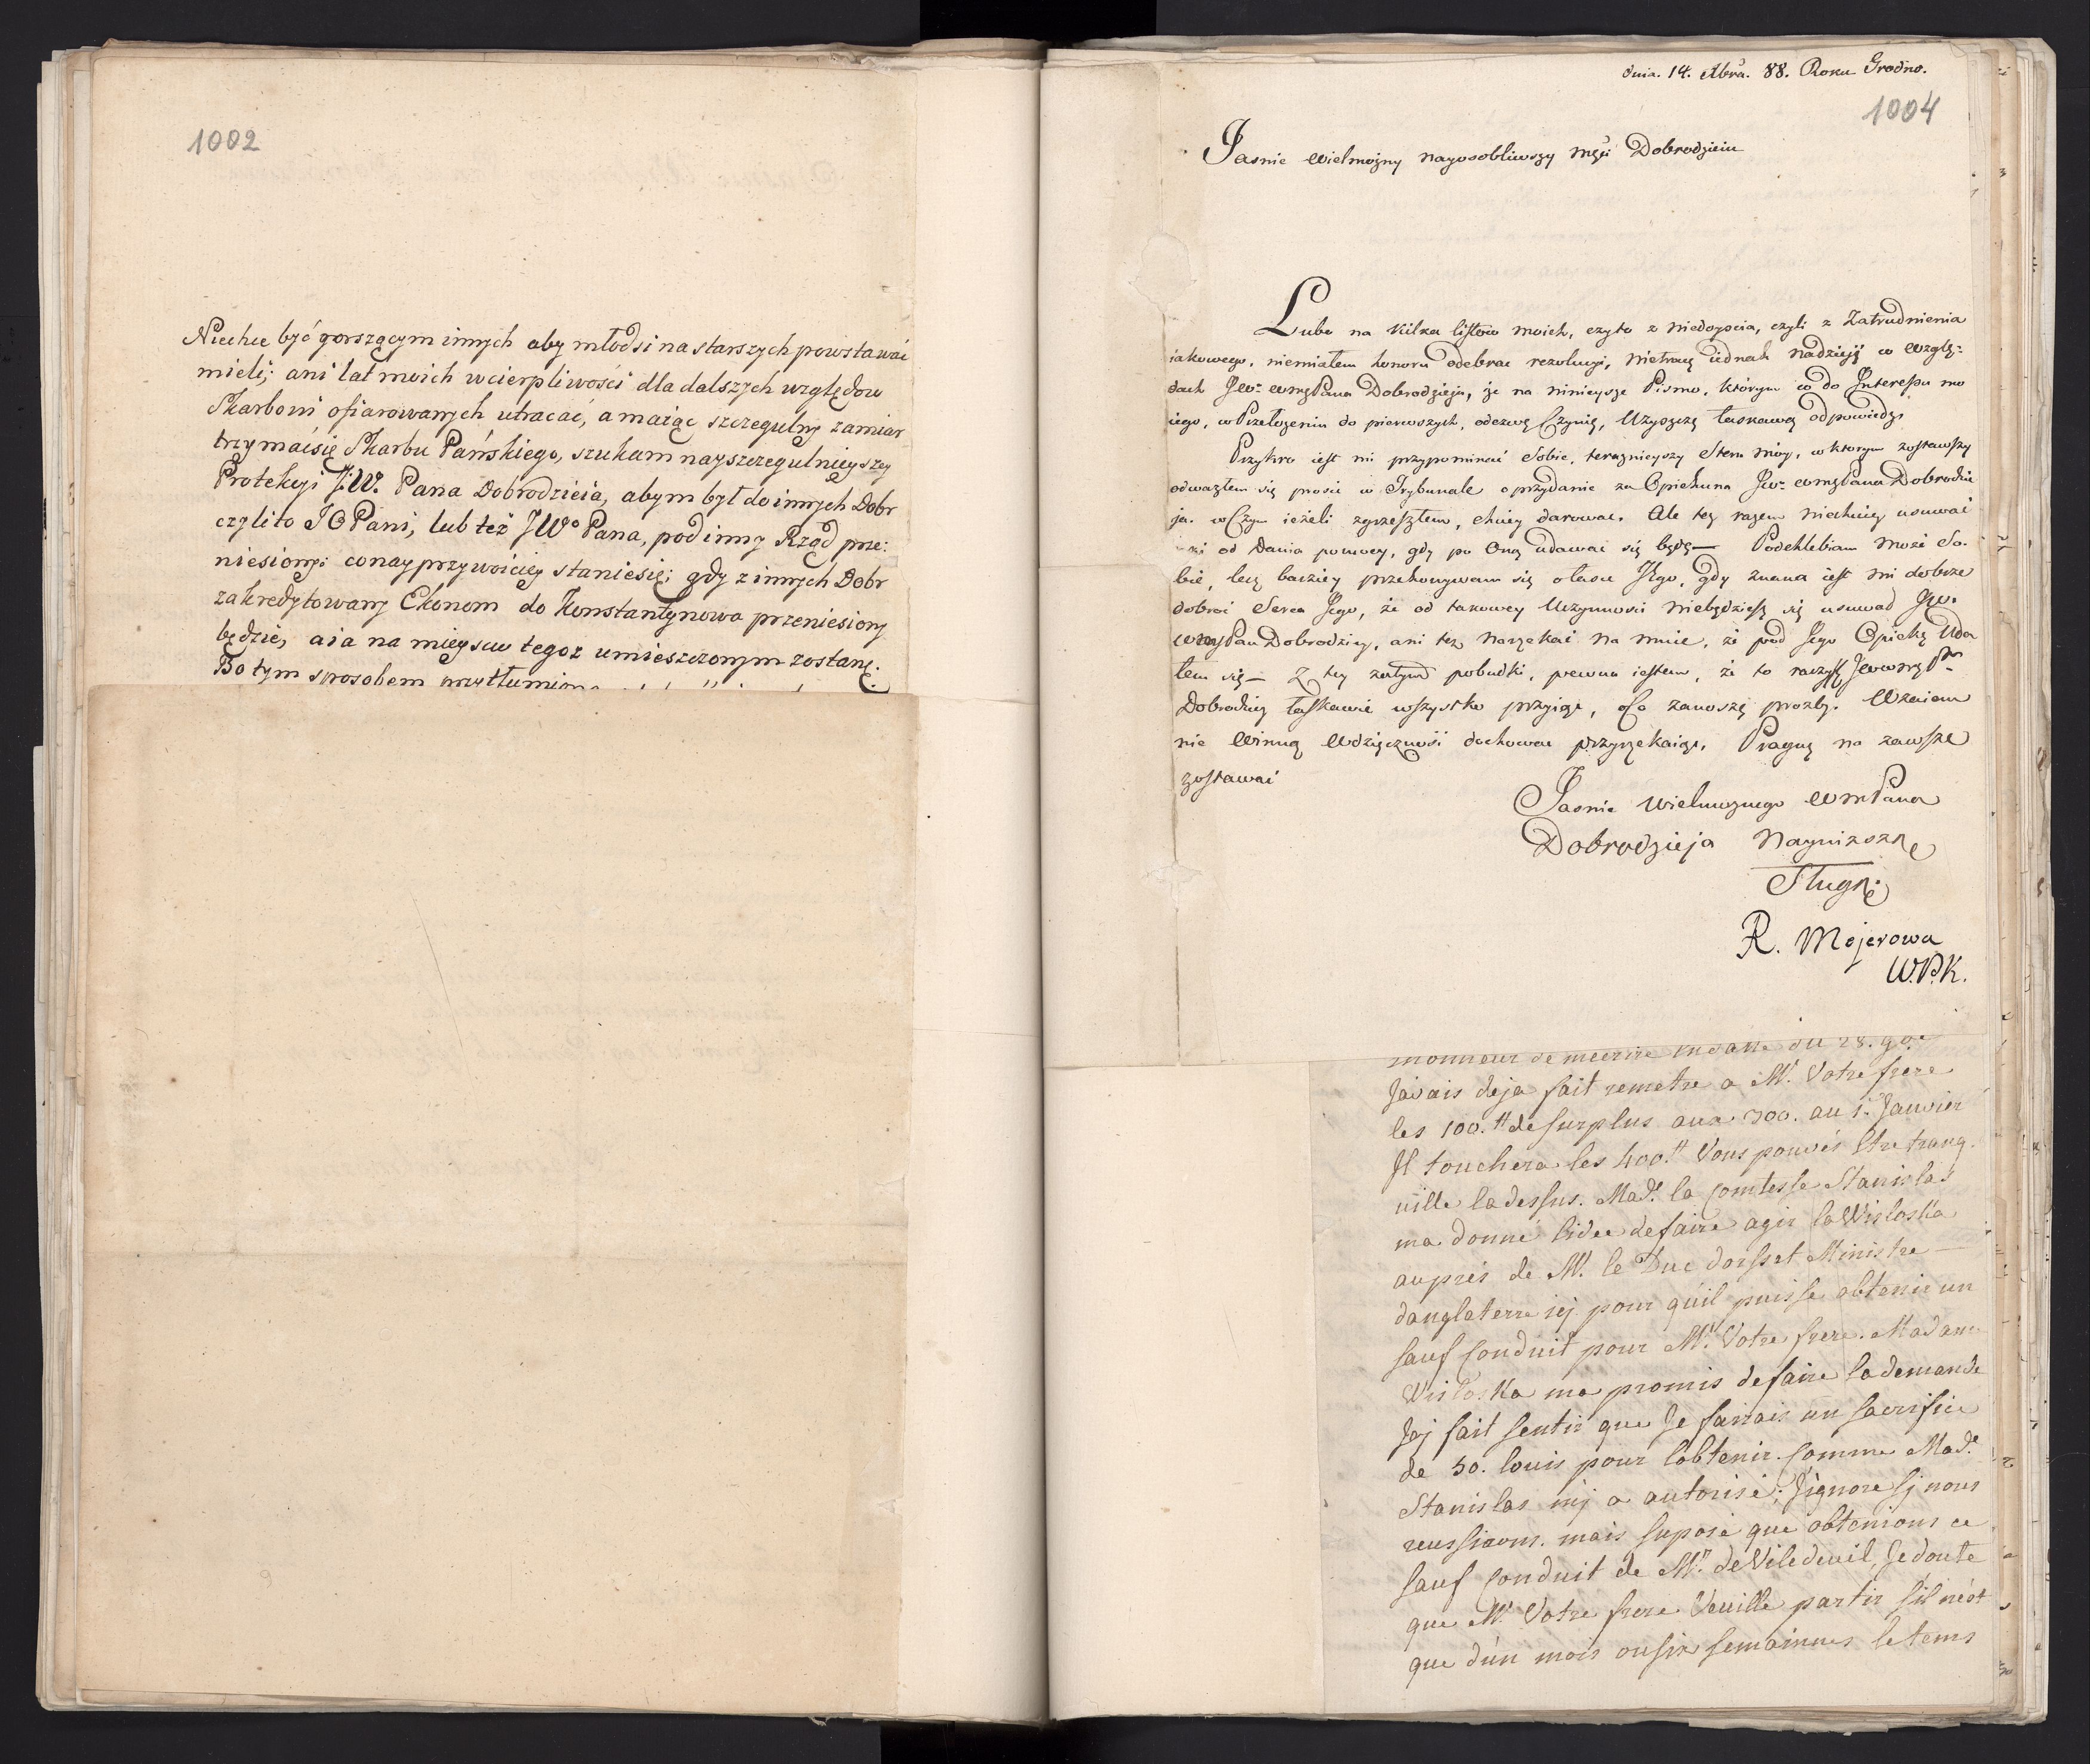 1002
Niechce być gorszącym innych aby młodsi na starszych powstawać
mieli; ani lat moich w cierpliwości dla dalszych względow
Skarbowi ofiarowanych utracać, a maiąc szczegulny zamiar
trzymaćsię Skarbu Pańskiego, szukam nayszczegulnieyszey
Protekcyi J:W. Pana Dobrodzieia, abym był do innych Dobr
czyli to J O Pani, lub też JWo Pana, pod inny Rząd prze:
niesiony: co nayprzyzwoiciey staniesię; gdy z innych Dobr
zakredytowany Ekonom do Konstantynowa przeniesiony
będzie, a ia na mieyscu tegoz umieszczonym zostanę.
Bo tym sposobem
dnia. 14. Xbra. 88. Roku Grodno.
1004
Jasnie Wielmożny nayosobliwszy Mści Dobrodzieiu
Lubo na kilka listow moich, czyto z niedoyscia, czyli z Zatrudnienia
iakowego, niemiałem honoru odebrac rezolucyi, nietracę iednak nadzieję w Wzglę:
dach JW: WmPana Dobrodzieja, że na ninieysze Pismo, którym co do Interessu mo
iego, w Przełożeniu do pierwszych, odezwę Czynię, Uzyszczę łaskawą odpowiedz.
Przykro iest mi przypominać Sobie, teraznieyszy Stan móy, w ktorym zostawszy
odwazyłem się prosic w Trybunale o przydanie za Opiekuna JW: WmPana Dobrodzie
ja. w Czym ieżeli zgrzeszyłem, chciey darowac. Ale tez razem niechciey usuwać
się od Dania pomocy, gdy po Oną udawac się będę— Podchlebiam może So-
bie, lecz barziey przekonywam się o łasce Jego, gdy znana iest mi dobrze
dobroć Serca Jego, że od takowey Uczynności niebędziesz się usuwał JW.
WmPan Dobrodziey, ani tez narzekać na mnie, że pod Jego Opiekę Uda
łem się— Z tey zatym pobudki, pewna iestem, że to raczysz JWWmPn
Dobrodziey łaskawie wszystko przyiąć, o Co zanoszę prozby. Wzaiem
nie Winną Wdzięcznosć dochowac przyrzekaiąc, Pragnę na zawsze
zostawać
Jasnie Wielmoznego WmPana
Dobrodzieja Nayniższą
Sługą
R. Mejerowa
W.P.K.
monneur de mecrire en datte du 28. 9bre
Javais deja fait remetre a M. Votre frere
les 100.# de surplus aux 300. au 1. Janvier
Il touchera les 400.# Vous pouvés Etre tranq.
uille ladessus. Made. la Comtesse Stanislas
ma donné lidee defaire agir la Wisloska
auprés de M. le Duc dorsset Ministre —
danglaterre icj pour quil puisse obtenir un
sauf Conduit pour Mr. Votre frere. Madame
Wisloska ma promis de faire la demande
Jaj fait sentir que Je fairais un sacrifice
de 50. louis pour lobtenir. Comme Made.
Stanislas mj a autorisé; Jignore sj nous
reussirons. mais suposé que obtenions ce
sauf Conduit de Mr. deViledeuil, Je doute
que M. Votre frere Veuille partir sil nest
que dún mois ou six semaines le tems